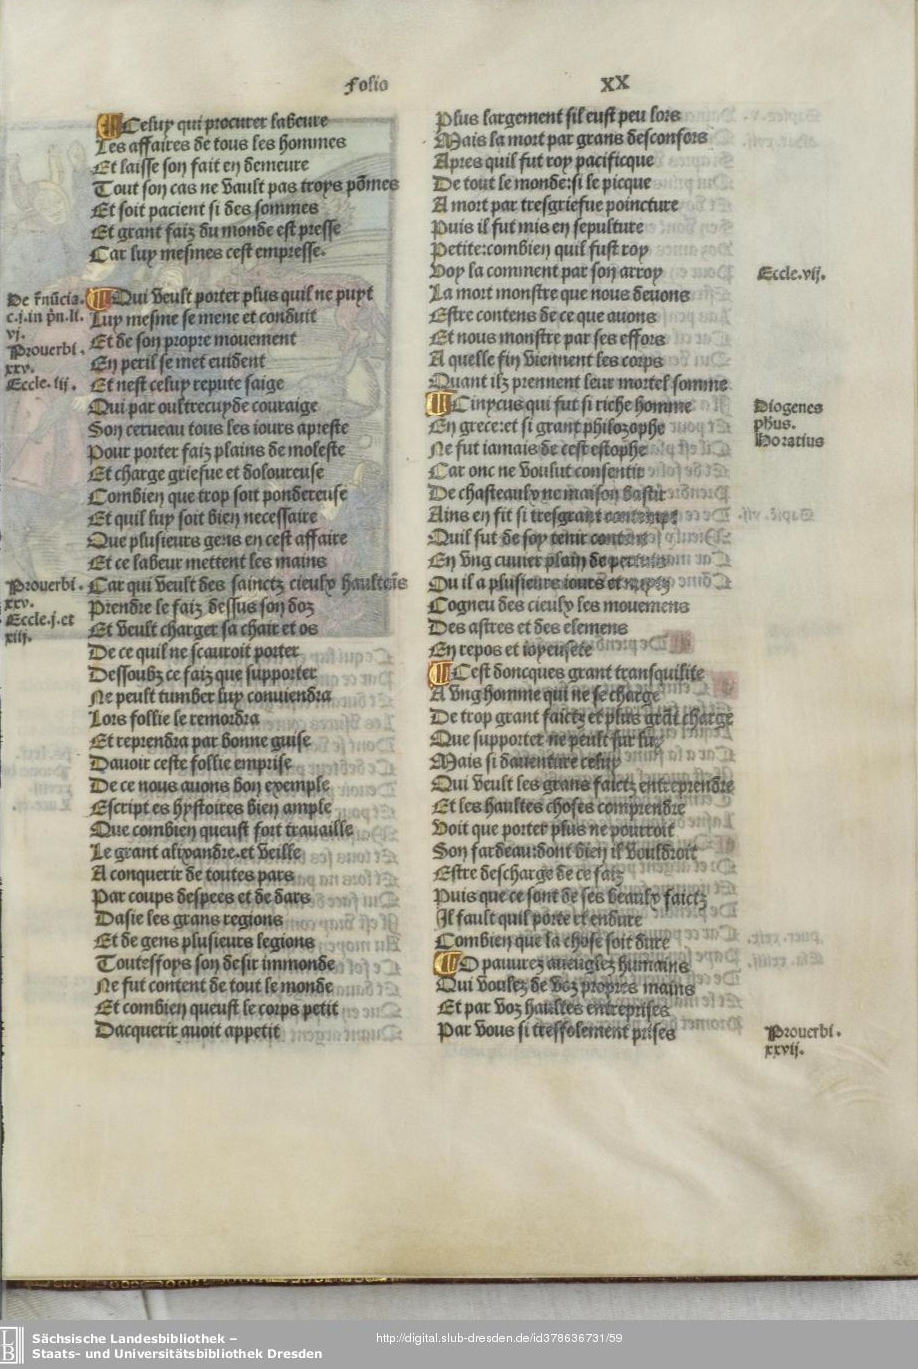 Folio XX
Celuy qui procurer labeure
Les affaires de tous les hommes
Et laisse son fait en demeure
Tout son cas ne vault pas troys põmes
Et soit pacient si des sommes
Et grant faiz du monde est presse
Car luy mesmes cest empresse.
De r̃nũcia.
c.j.in p̃n.li.
vj.
Prouerbi.
xxv.
Eccle.iij.
Qui veult porter plus quil ne puyt
Luy mesme se mene et conduit
Et de son propre mouement
En peril se met euident
Et nest celuy repute saige
Qui par oultrecuyde couraige
Son cerueau tous les iours apreste
Pour porter faiz plains de moleste
Et charge griefue et doloureuse
Combien que trop soit pondereuse
Et quil luy soit bien necessaire
Que plusieurs gens en cest affaire
Et ce labeur mettent les mains
Prouerbi.
xxv.
Eccle.j.et
xiij.
Car qui veult des sainctz cieulx haultaĩs
Prendre le faiz dessus son doz
Et veult charger sa chair et os
De ce quil ne scauroit porter
Dessoubz ce faiz que supporter
Ne peult tumber luy conuiendra
Lors follie le remordra
Et reprendra par bonne guise
Dauoir ceste follie emprise
De ce nous auons bon exemple
Escript es hystoires bien ample
Que combien queust fort trauaille
Le grant alixandre.et veille
A conquerir de toutes pars
Par coups despees et de dars
Dasie les grans regions
Et de gens plusieurs legions
Touteffoys son desir immonde
Ne fut content de tout le monde
Et combien queust le corps petit
Dacquerir auoit appetit
Plus largement sil eust peu lors
Mais la mort par grans desconfors
Apres quil fut roy pacificque
De tout le monde:si le picque
A mort par tresgriefue poincture
Puis il fut mis en sepulture
Petite:combien quil fust roy
Voy la comment par son arroy
Eccle.vij.
La mort monstre que nous deuons
Estre contens de ce que auons
Et nous monstre par ses effors
A quelle fin viennent les corps
Quant ilz prennent leur mortel somme
Cinycus qui fut si riche homme
Diogenes
phus.
Horatius
En grece:et si grant philozophe
Ne fut iamais de cest estophe
Car onc ne voulut consentir
De chasteaulx ne maison bastir
Ains en fit si tresgrant contempt
Quil fut de soy tenir content
En vng cuuier plain de pertuis
Ou il a plusieurs iours et nuytz
Cogneu des cieulx les mouemens
Des astres et des elemens
En repos et ioyeusete
Cest doncques grant transquilite
A vng homme qui ne se charge
De trop grant faictz et plus grãt charge
Que supporter ne peult sur luy
Mais si dauenture celuy
Qui veult les grans faictz entreprendre
Et les haultes choses comprendre
Voit que porter plus ne pourroit
Son fardeau:dont bien il vouldroit
Estre descharge de ce faiz
Puis que ce sont de ses beaulx faictz
Il fault quil porte et endure
Combien que la chose soit dure
O pauurez aueuglez humains
Qui voulez de voz propres mains
Et par voz haultes entreprises
Par vous si treffolement prises
Prouerbi.
xxvij.
Sächsische Landesbibliothek –
Staats- und Universitätsbibliothek Dresden
http://digital.slub-dresden.de/id378636731/59